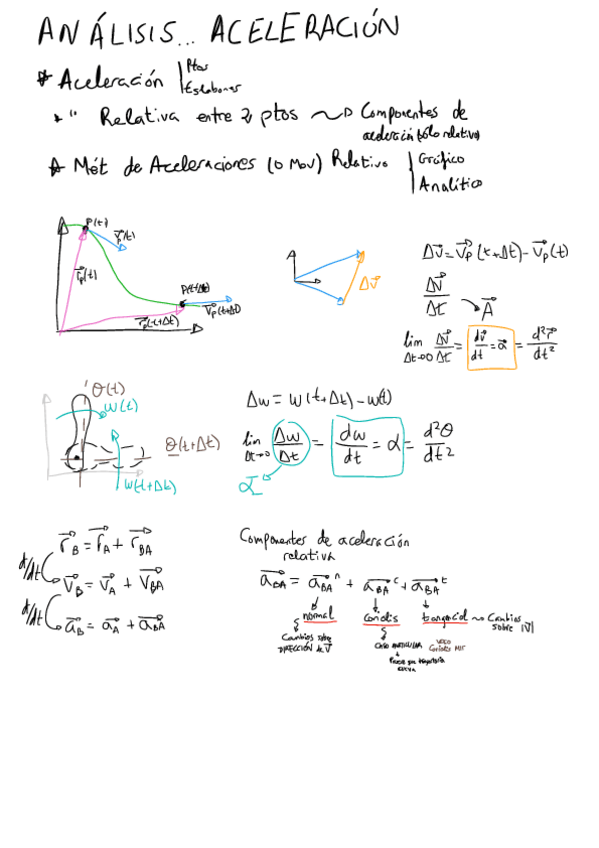 ANÁLISIS... ACELERACIÓN
* Aceleración | Ptos
Eslabones
* " Relativa entre 2 ptos ~> Componentes de
aceleración (sólo relativa)
* Mét de Aceleraciones (o Mov) Relativo | Gráfico
Analítico
P(t)
V⃗p(t)
r⃗p(t)
P(t+Δt)
V⃗p(t+Δt)
r⃗p(t+Δt)
ΔV⃗
ΔV⃗ = V⃗p(t+Δt) - V⃗p(t)
ΔV⃗/Δt → A⃗
lim Δt→0 ΔV⃗/Δt = dV⃗/dt = a⃗ = d²r⃗/dt²
θ(t)
w(t)
θ(t+Δt)
w(t+Δt)
Δw = w(t+Δt) - w(t)
lim Δt→0 Δw/Δt = dw/dt = α = d²θ/dt²
r⃗B = r⃗A + r⃗BA
d/dt
V⃗B = V⃗A + V⃗BA
d/dt
a⃗B = a⃗A + a⃗BA
Componentes de aceleración
relativa
a⃗BA = a⃗BAⁿ + a⃗BAᶜ + a⃗BAᵗ
normal
Cambios sobre
DIRECCIÓN de V⃗
Coriolis
CASO PARTICULAR
Parece que trayectoria
CURVA
VIDEO
Coriolis MIT
tangencial ~> Cambios
sobre |V⃗|